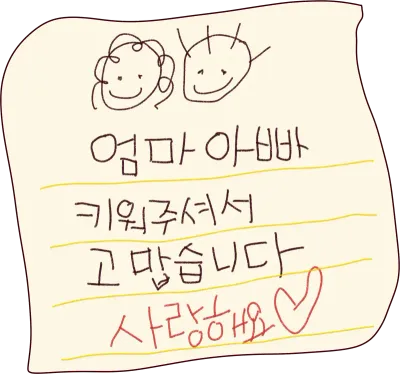 엄마 아빠
키워주셔서
고맙습니다
사랑해요♡